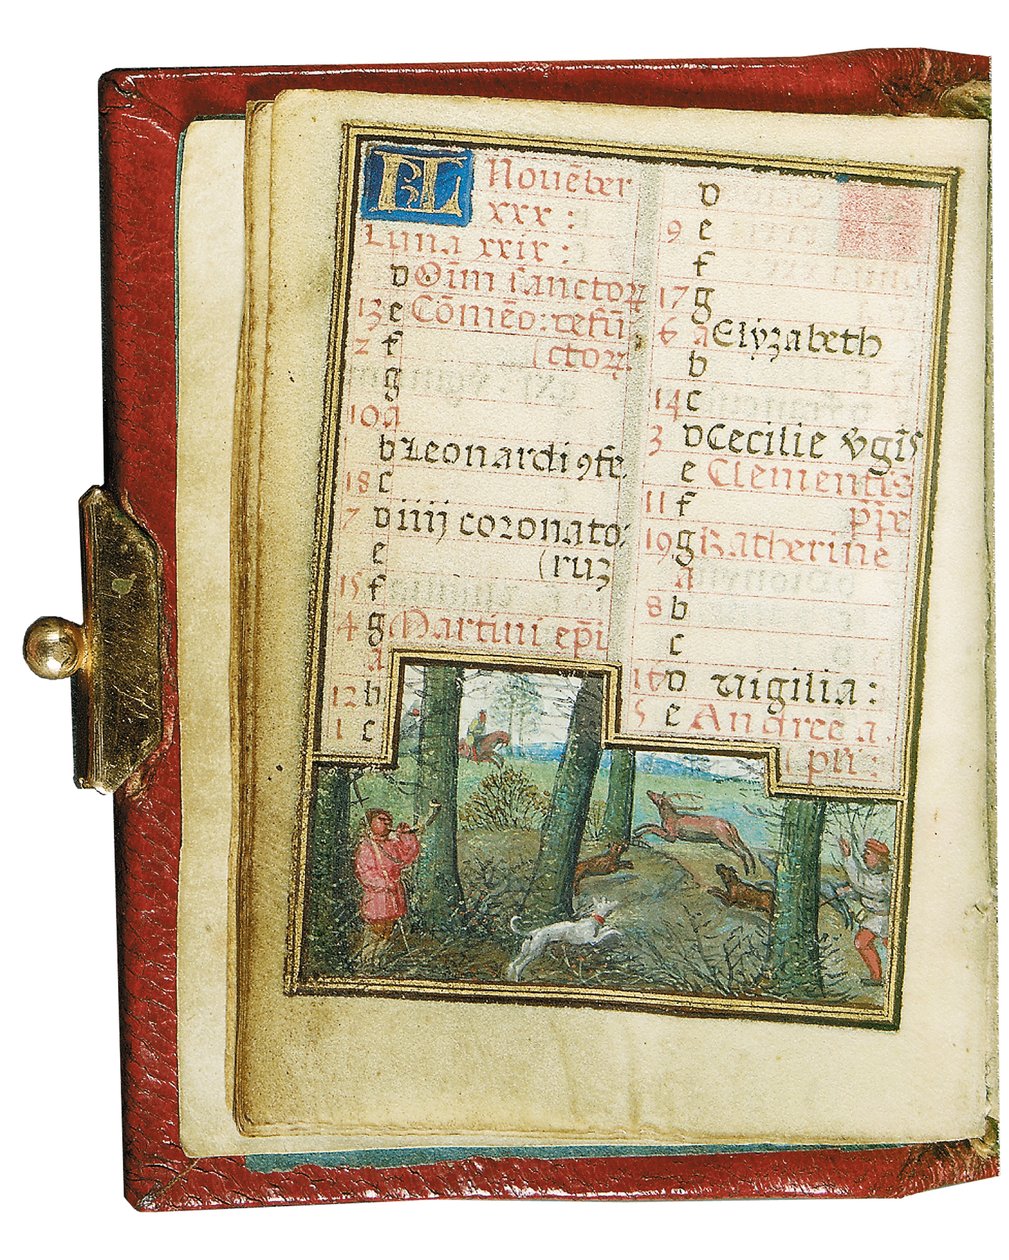 KL Novēber
xxx :
Luna xxix :
d Oīm sanctoꝝ
13 e Cōmēo: defū
2 f (ctoꝝ
g
10 a
b Leonardi ꝯfe.
18 c
7 d iiij coronato
e (ruz
15 f
4 g Martini ep̄i
a
12 b
1 c
d
9 e
f
17 g
6 a Elyzabeth
b
14 c
3 d Cecilie v̄gīs
e Clementis
11 f p̄pe
19 g Katherine
a
8 b
c
16 d vigilia :
5 e Andree a
pli :